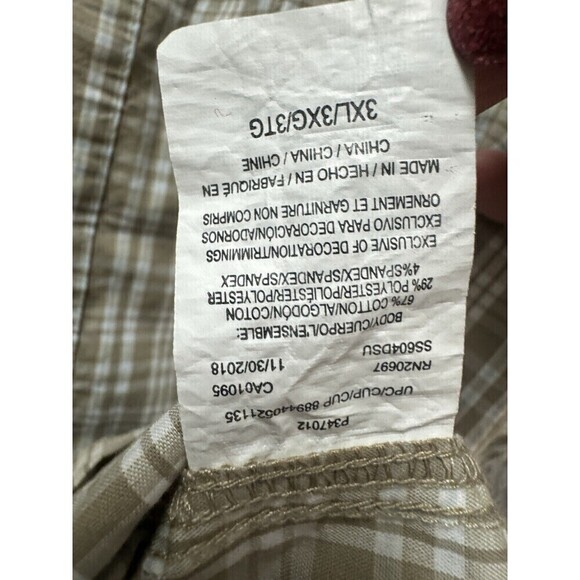 P347012
UPC/CUP/CUP 889440521135
RN20697 CA01095
SS604DSU 11/30/2018
BODY/CUERPO/L'ENSEMBLE:
67% COTTON/ALGODÓN/COTON
29% POLYESTER/POLIÉSTER/POLYESTER
4%SPANDEX/SPANDEX/SPANDEX
EXCLUSIVE OF DECORATION/TRIMMINGS
EXCLUSIVO PARA DECORACIÓN/ADORNOS
ORNEMENT ET GARNITURE NON COMPRIS
MADE IN / HECHO EN / FABRIQUÉ EN
CHINA / CHINA / CHINE
3XL/3XG/3TG